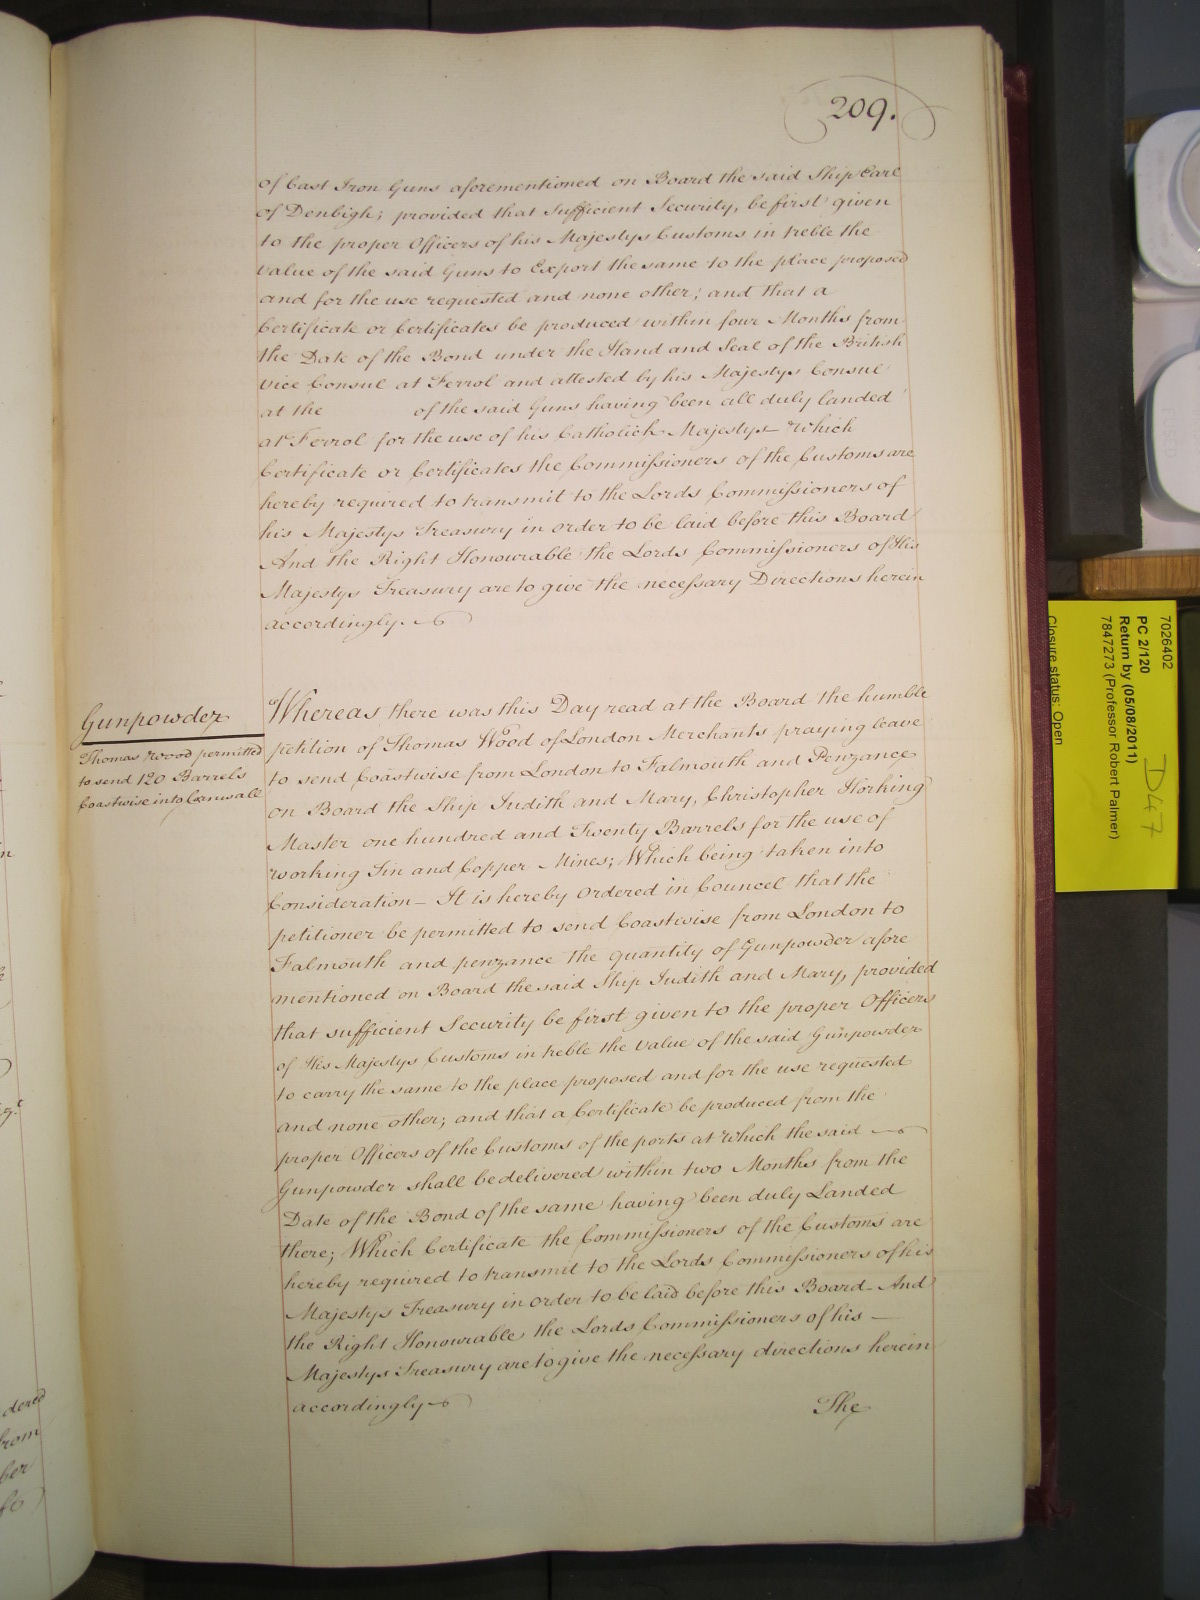 209.
of Cast Iron Guns aforementioned on Board the said Ship Earl
of Denbigh; provided that Sufficient Security, be first given
to the proper Officers of his Majestys Customs in treble the
value of the said Guns to Export the same to the place proposed
and for the use requested and none other; and that a
Certificate or Certificates be produced within four Months from
the Date of the Bond under the Hand and Seal of the British
Vice Consul at Ferrol and attested by his Majestys Consul
at the of the said Guns having been all duly landed
at Ferrol for the use of his Catholick Majesty - Which
Certificate or Certificates the Commissioners of the Customs are
hereby required to transmit to the Lords Commissioners of
his Majestys Treasury in order to be laid before this Board
And the Right Honourable the Lords Commissioners of His
Majestys Treasury are to give the necessary Directions herein
accordingly.
Gunpowder
Thomas Wood permitted
to send 120 Barrels
Coastwise into Cornwall
Whereas there was this Day read at the Board the humble
petition of Thomas Wood of London Merchants praying leave
to send Coastwise from London to Falmouth and Penzance
on Board the Ship Judith and Mary, Christopher Horking
Master one hundred and Twenty Barrels for the use of
working Tin and Copper Mines; Which being taken into
Consideration - It is hereby Ordered in Councel that the
petitioner be permitted to send Coastwise from London to
Falmouth and penzance the quantity of Gunpowder afore
mentioned on Board the said Ship Judith and Mary, provided
that sufficient Security be first given to the proper Officers
of His Majestys Customs in treble the value of the said Gunpowder
to carry the same to the place proposed and for the use requested
and none other; and that a Certificate be produced from the
proper Officers of the Customs of the ports at which the said
Gunpowder shall be delivered within two Months from the
Date of the Bond of the same having been duly Landed
there; Which Certificate the Commissioners of the Customs are
hereby required to transmit to the Lords Commissioners of his
Majestys Treasury in order to be laid before this Board - And
the Right Honourable the Lords Commissioners of his -
Majestys Treasury are to give the necessary directions herein
accordingly
The
7026402
PC 2/120
Return by (05/08/2011)
7847273 (Professor Robert Palmer)
Closure status: Open
D47
dered
from
ber